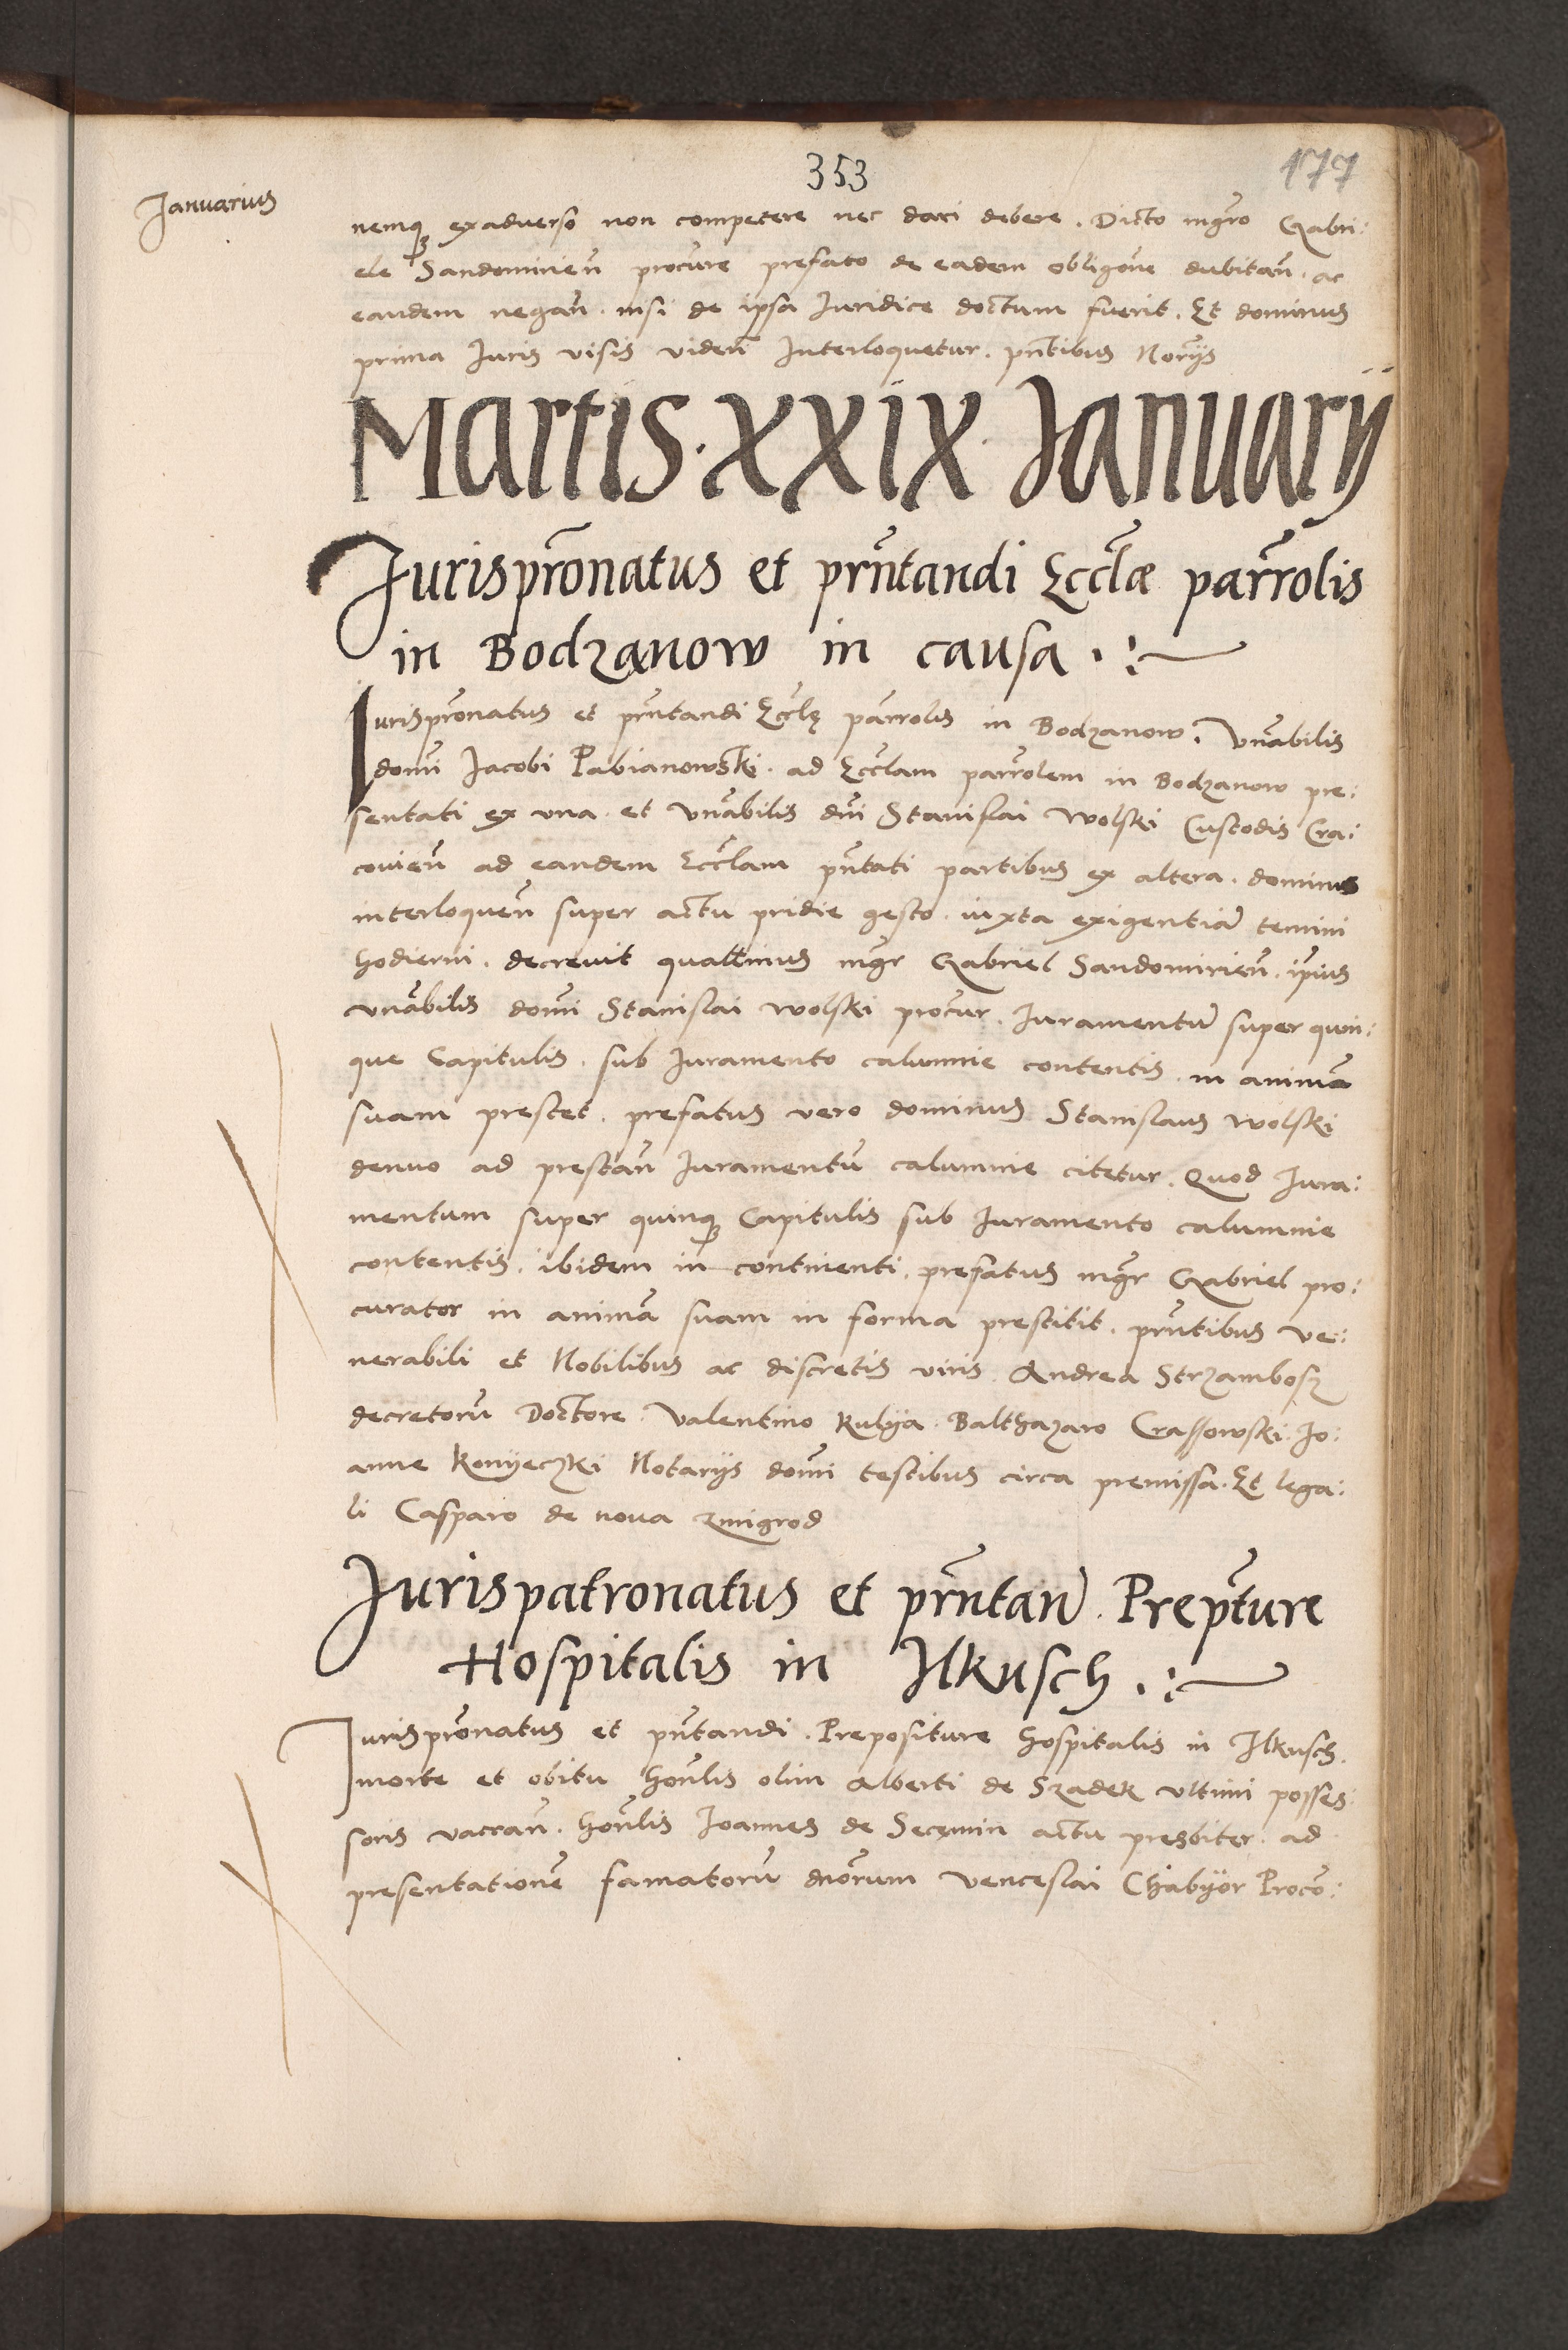 353
177
Januarius
nemq3 exadverso non competere nec dari debere. Dicto mgro Gabri:
ele Sandomirien procure prefato de eadem obligone dubitan. ac
eandem negan. nisi de ipsa Juridice doctum fuerit. Et dominus
prima Juris visis viden Interloquetur. pntibus Norijs
Martis. XXIX. Januarij
Jurispronatus et prntandi Ecclæ parrolis
in Bodzanow in causa.
Jurispronatus et prntandi Ecclę parrolis in Bodzanow. Vnabilis
domi Jacobi Pabianowski. ad Ecclam parrolem in Bodzanow pre:
sentati ex vna. et Vnabilis dni Stanislai Wolski Custodis Cra:
covien ad eandem Ecclam pntati partibus ex altera. dominus
interloquen super actu pridie gesto. iuxta exigentia temini
hodierni. decrevit quattinus mgr Gabriel Sandomirien. ipius
vnabilis domi Stanislai Wolski procur. Juramentu super quin:
que Capitulis. sub Juramento calumnie contentis. in anima
suam prestet. prefatus vero dominus Stanislaus Wolski
denuo ad prestan Juramentu calumnie citetur. Quod Jura:
mentum super quinq3 Capitulis sub Juramento calumnie
contentis. ibidem in continenti. prefatus mgr Gabriel pro:
curator in anima suam in forma prestitit. prntibus ve:
nerabili et Nobilibus ac discretis viris Andrea Strzambosz
decretoru Doctore. Valentino Kulya. Balthazaro Crassowski. Jo:
anne Konyeczki Notarijs domi testibus circa premissa. Et lega:
li Casparo de nova Zmigrod
Jurispatronatus et prntan. Prepture
Hospitalis in Ilkusch.
Jurispronatus et pntandi. Prepositure Hospitalis in Ilkusch.
morte et obitu honlis olim Alberti de Szadek vltimi posses:
soris vacran. honlis Joannes de Secemin actu presbiter. ad
presentatione famatoru dnorum Venceslai Chabyor Proco: